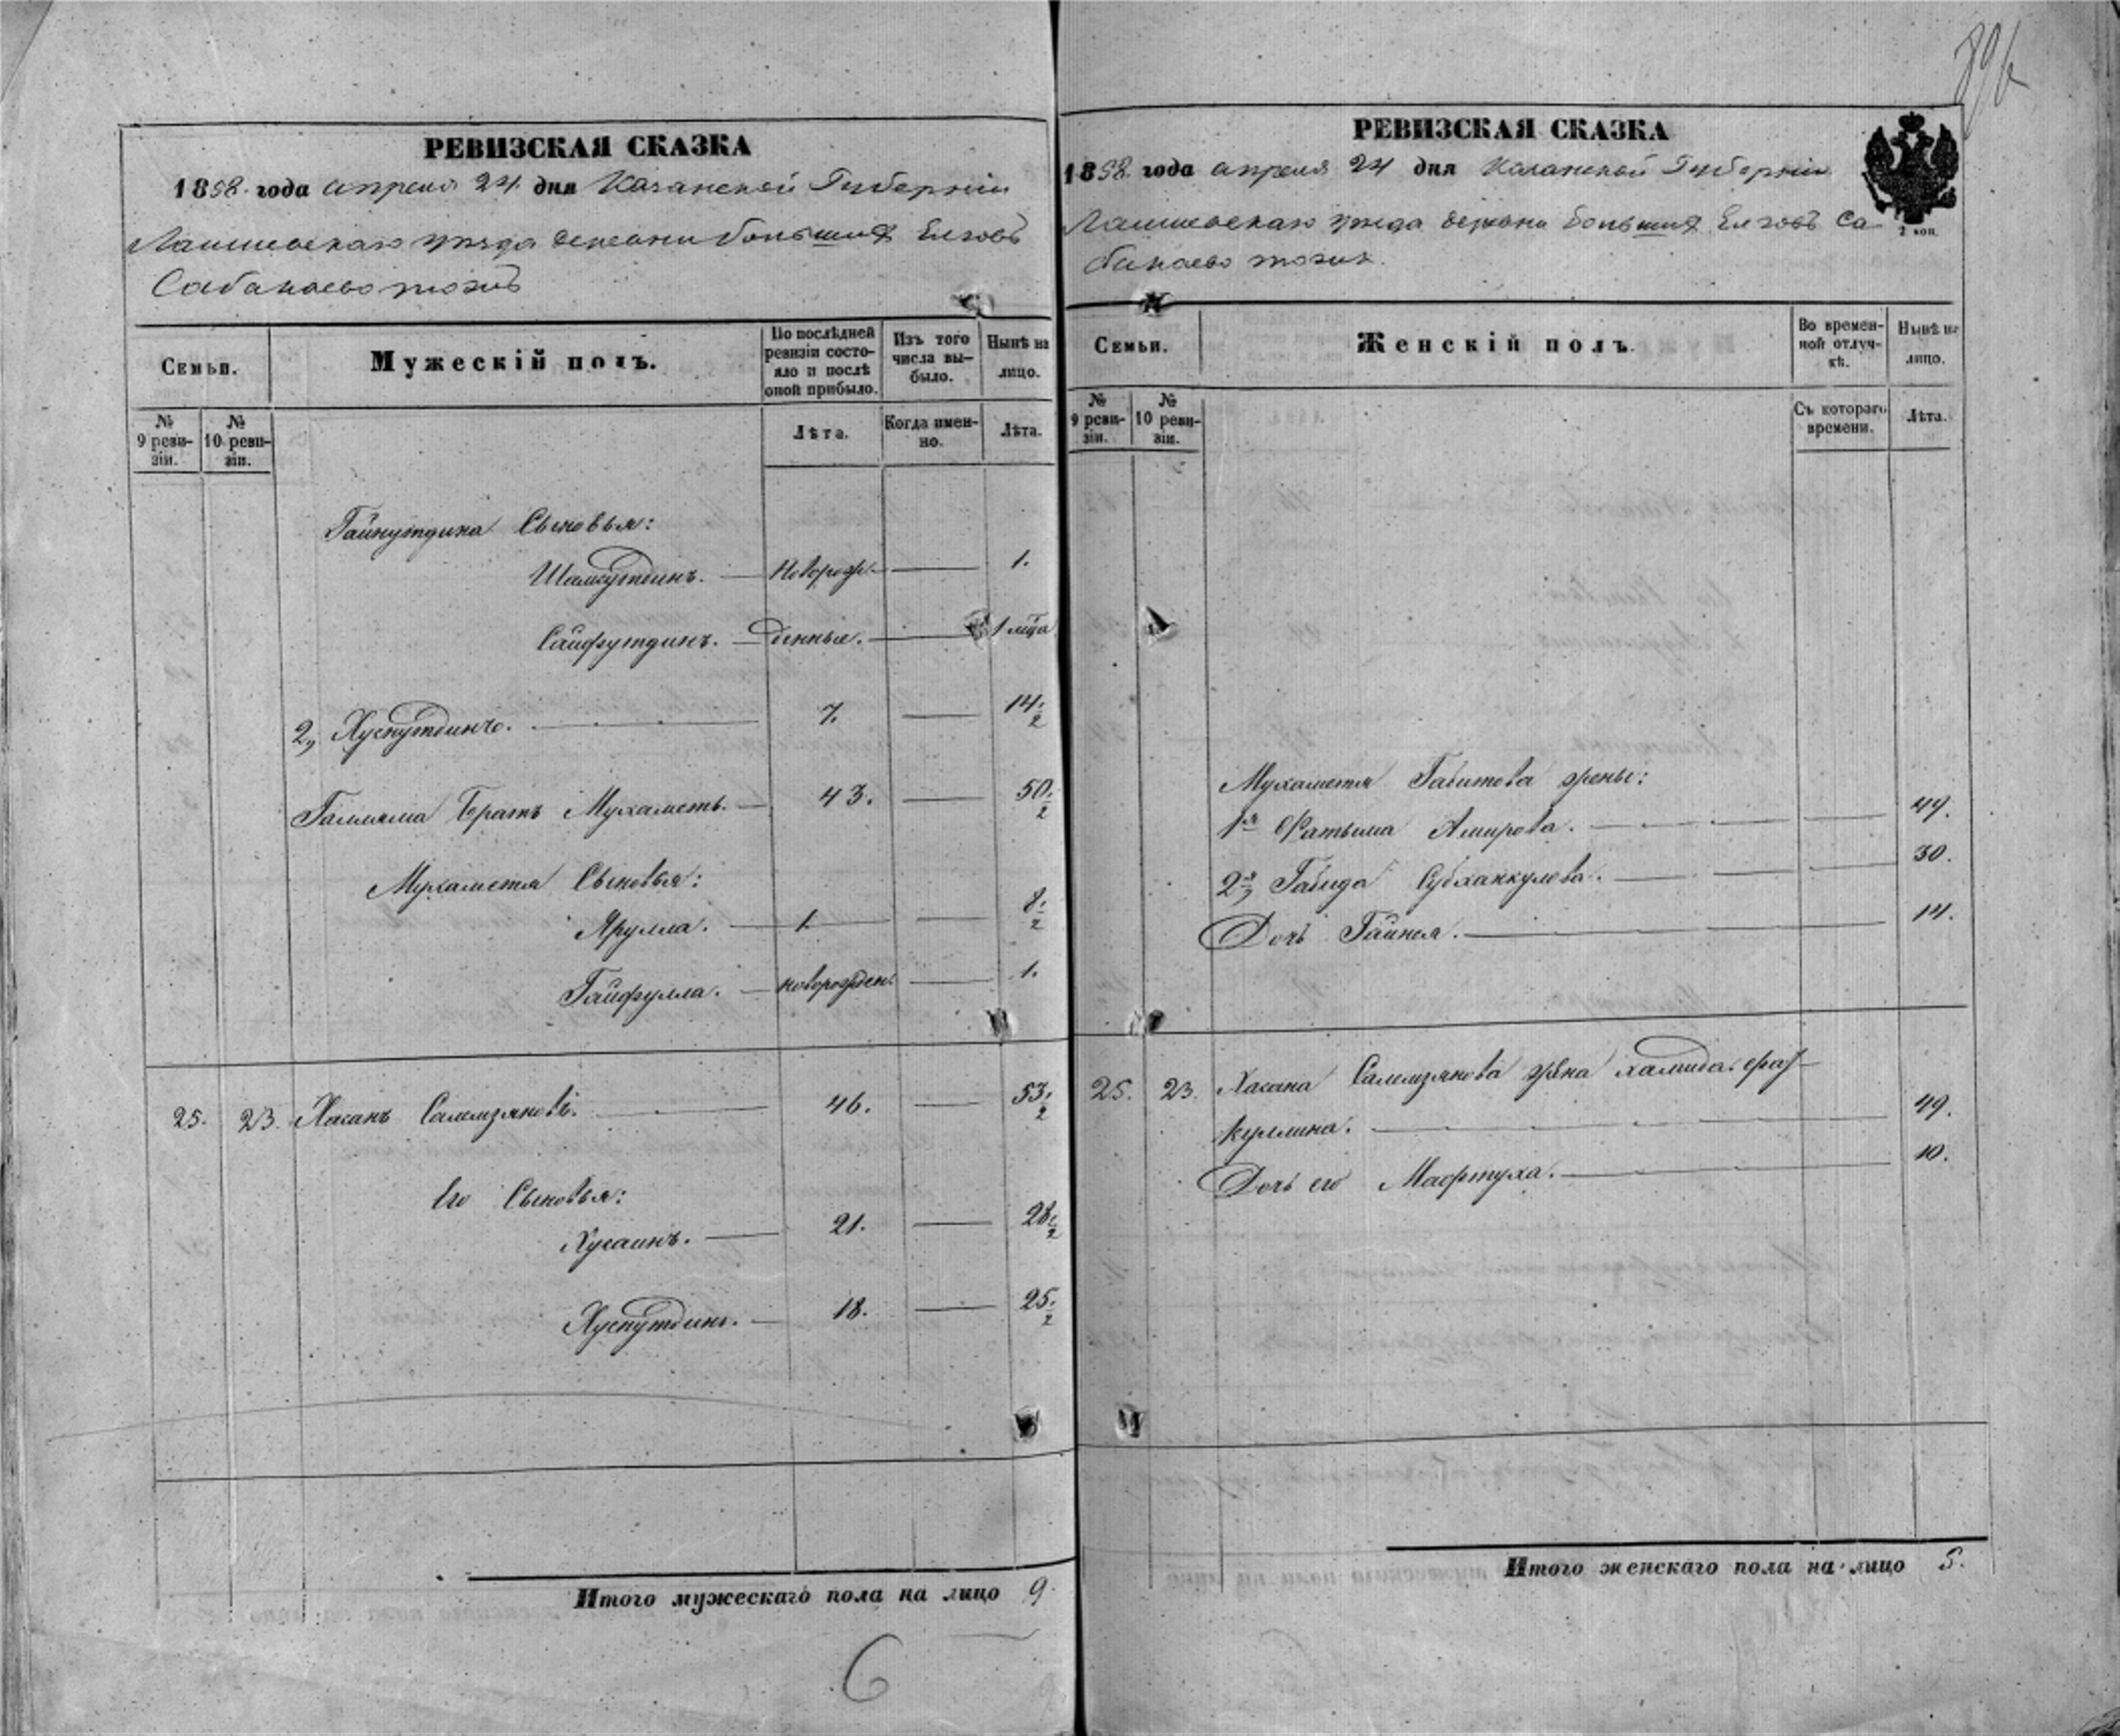 РЕВИЗСКАЯ СКАЗКА
1858 года апреля 24 дня Казанской Губернiи
Лаишевскаго уезда деревни Большихъ Елговъ
Сабанаево тожъ
Семьи.
Мужескiй полъ.
По послѣдней ревизiи состо-
яло и послѣ оной прибыло.
Изъ того числа вы-
было.
Нынѣ на лицо.
№ 9 реви-
зiи.
№ 10 реви-
зiи.
Лѣта.
Когда имен-
но.
Лѣта.
Гайнутдина Сыновья:
Шамсутдинъ. Новорож- 1.
Сайфутдинъ. денныя. 1 мца
2, Хуснутдинъ. 7. 14. 2
Братъ Мухаметъ. 43. 50. 2
Мухаметя Сыновья:
Ярулла. 1. 8. 2
Гайфулла. новорожден. 1.
25. 23. Хасанъ Салемзяновъ. 46. 53. 2
Его Сыновья:
Хусаинъ. 21. 28. 2
Хуснутдинъ. 18. 25. 2
Итого мужескаго пола на лицо 9.
6
РЕВИЗСКАЯ СКАЗКА
1858 года апреля 24 дня Казанской Губернiи
Лаишевскаго уезда деревни Большихъ Елговъ Са-
банаево тожъ.
2 коп.
Семьи.
Женскiй полъ.
Во времен-
ной отлуч-
кѣ.
Нынѣ на лицо.
№ 9 реви-
зiи.
№ 10 реви-
зiи.
Съ котораго времени.
Лѣта.
Мухаметя Габитова жены:
1я Фатыма Амирова. 49.
2я Габида Субханкулова. 30.
Дочь Гайния. 14.
25. 23. Хасана Салемзянова жена Халида Фаз-
куллина. 49.
Дочь его Мафтуха. 10.
Итого женскаго пола на лицо 5.